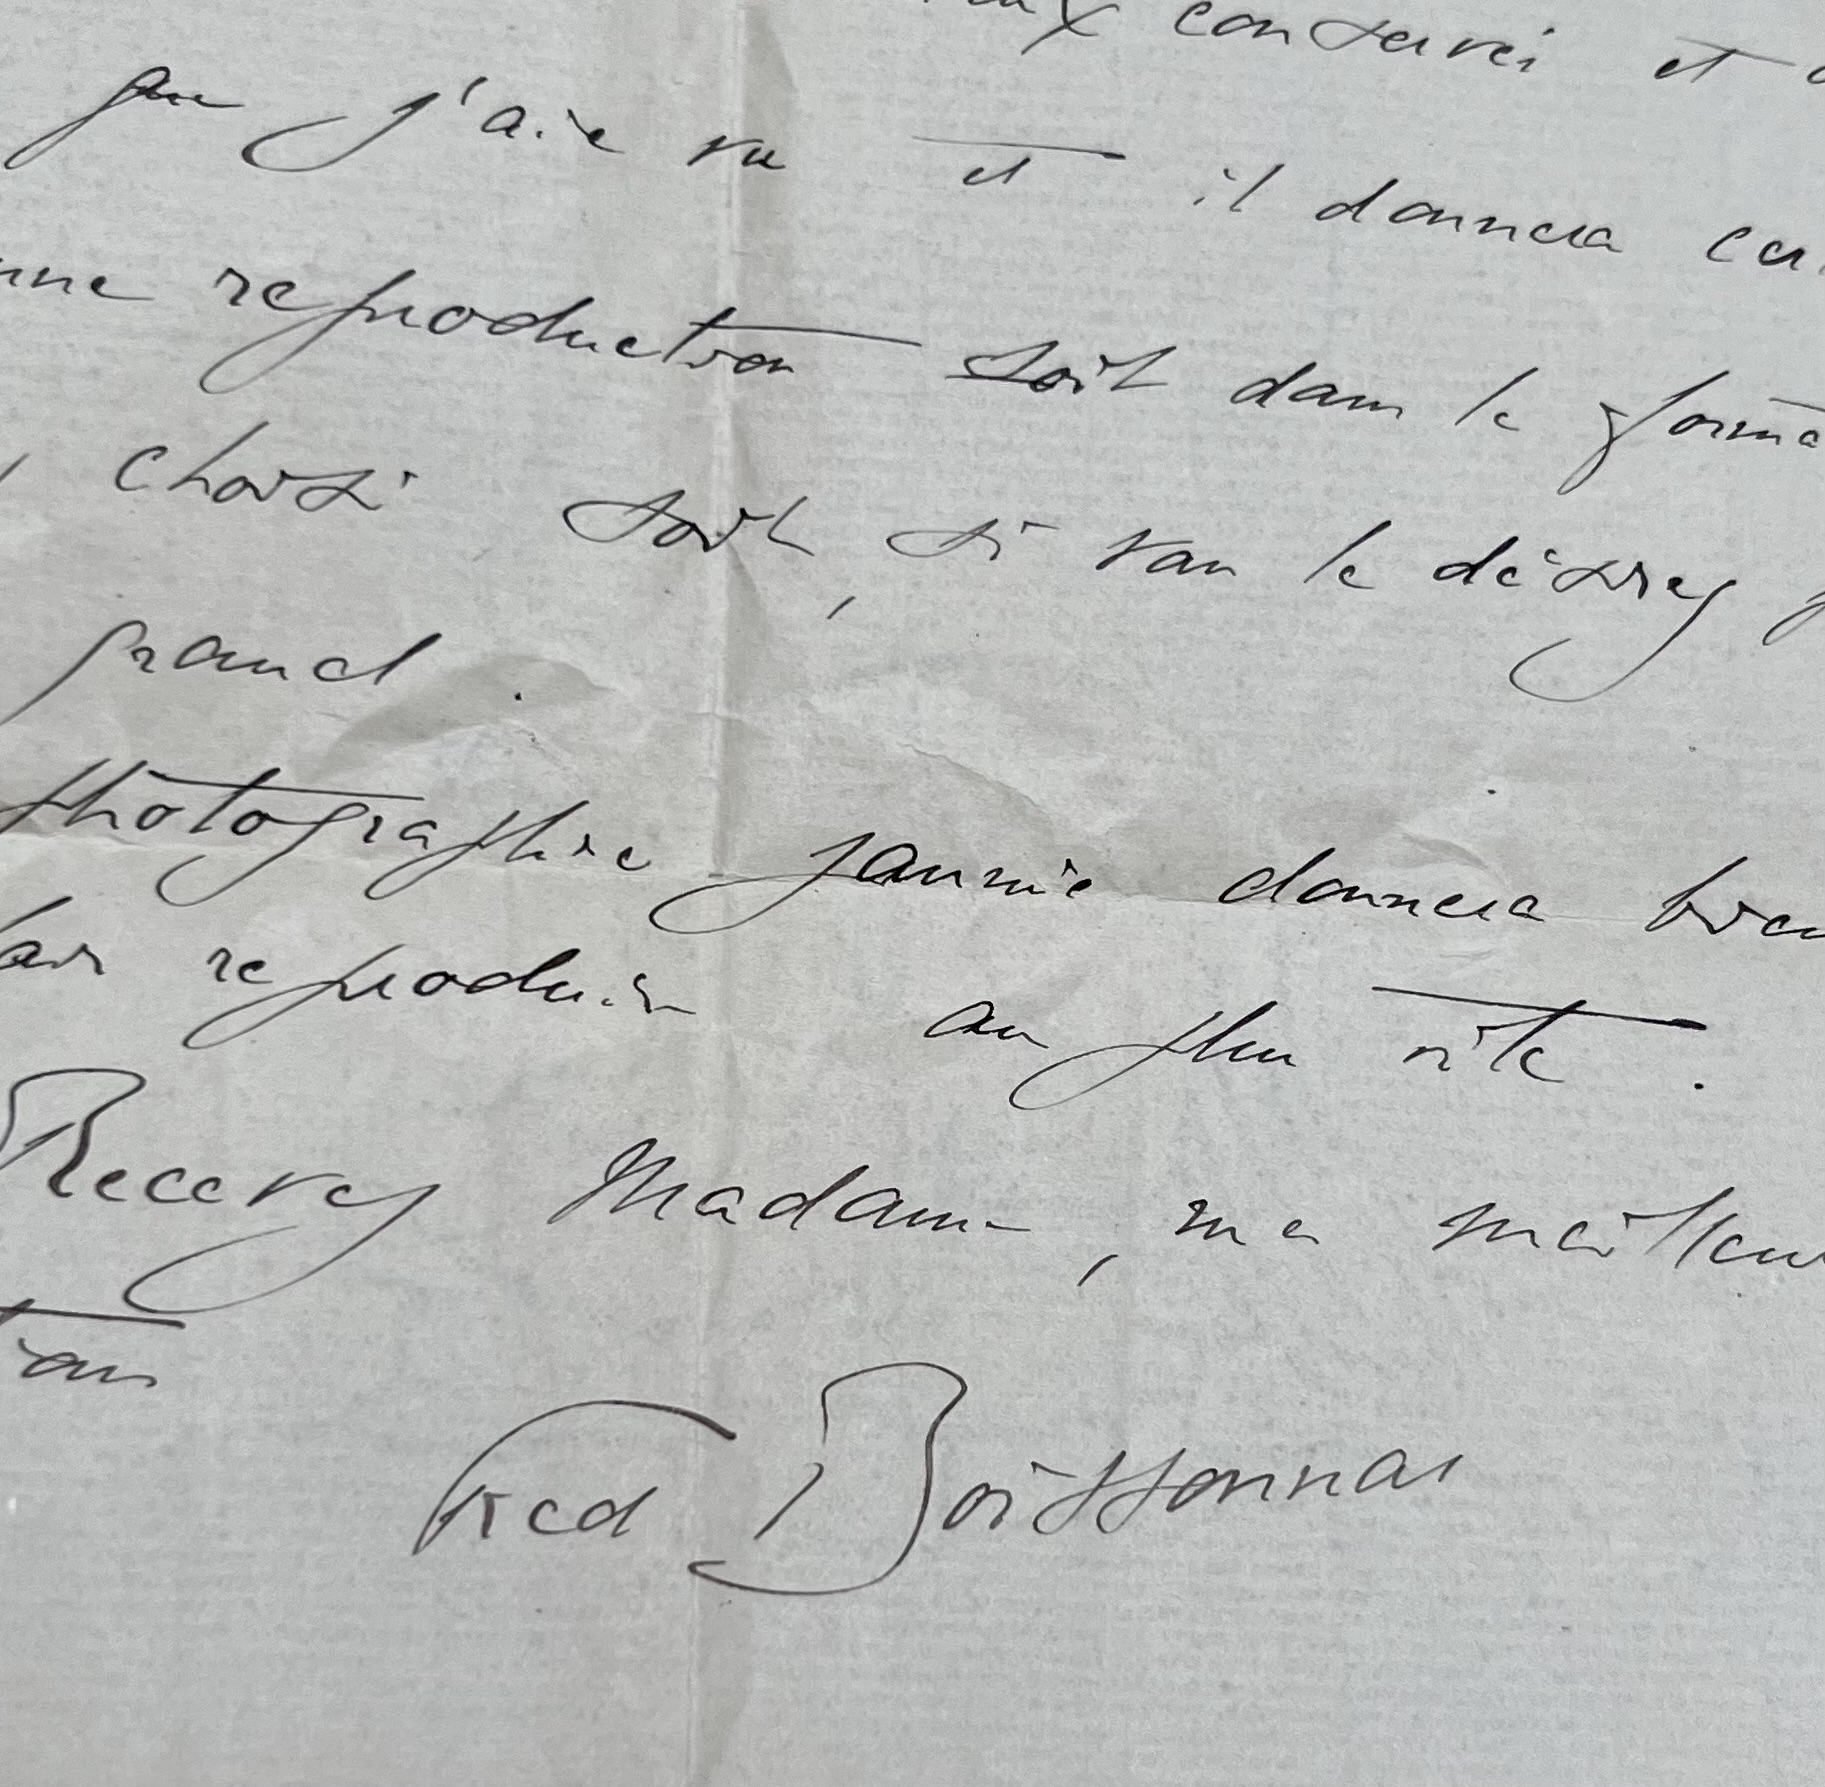 conservés et
que j'aie vu et il donnera
reproduction soit dans le
choisi soit, si vous le désirez
grand.
photographie jaunie donnera
reproduire au plus vite.
Recevez Madame, ma
Fred Boissonnas